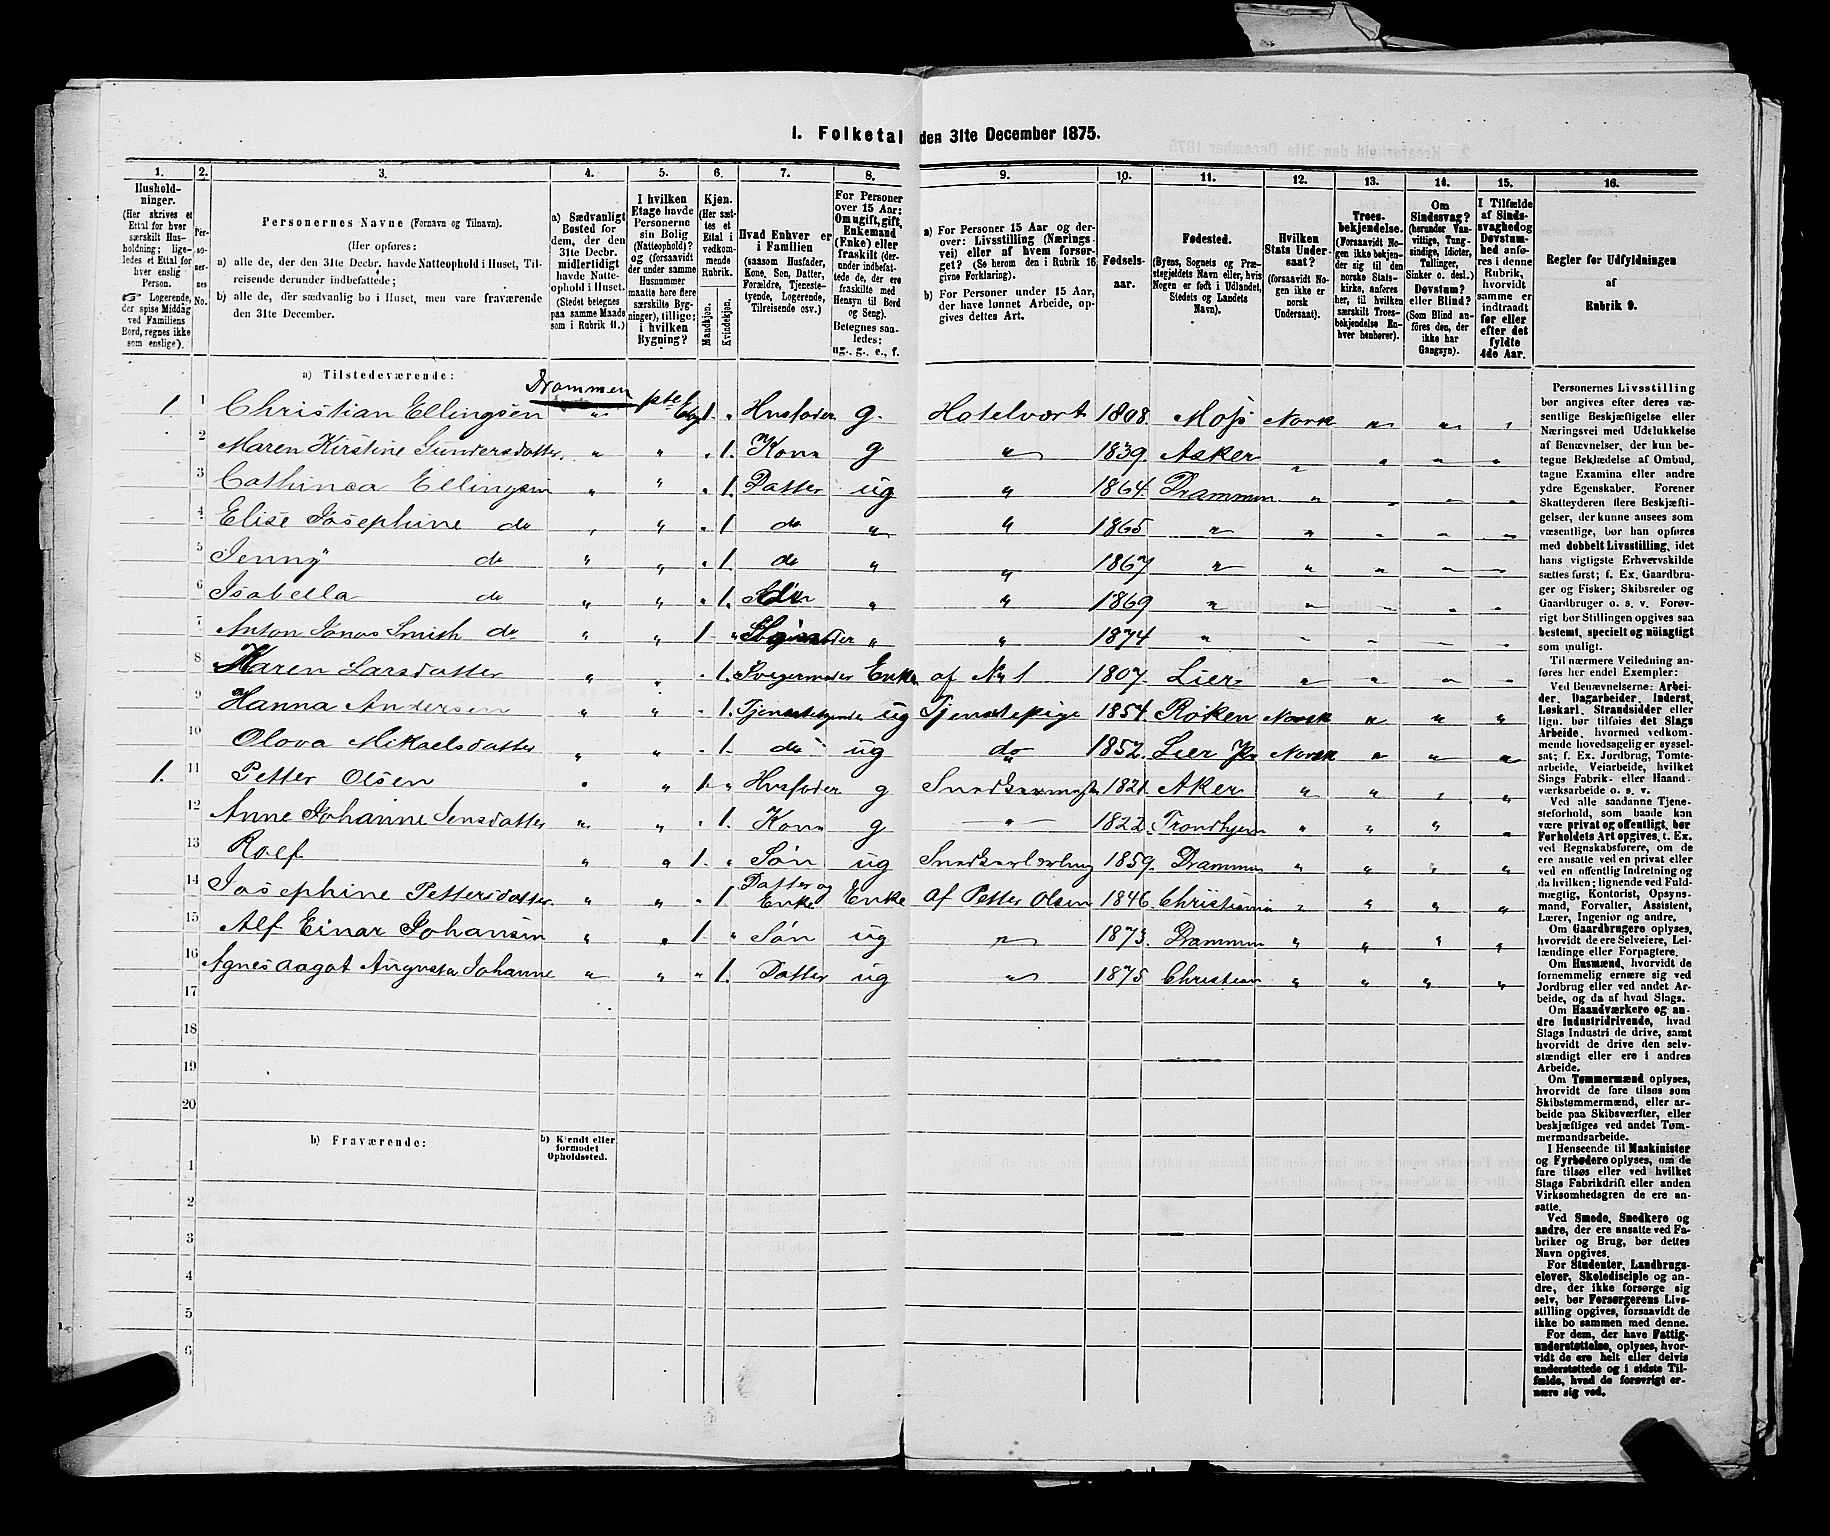 1. Folketal den 31te December 1875.
1. 2. 3. 4. 5. 6. 7. 8. 9. 10. 11. 12. 13. 14. 15. 16.
Hushold-
ninger.
(Her skrives et
Ettal for hver
særskilt Hus-
holdning; lige-
ledes et Ettal for
hver enslig
Person.
☞ Logerende,
der spise Middag
ved Familiens
Bord, regnes ikke
som enslige).
Per-
so-
ner-
nes
No.
Personernes Navne (Fornavn og Tilnavn).
(Her opføres:
a) alle de, der den 31te Decbr. havde Natteophold i Huset, Til-
reisende derunder indbefattede;
b) alle de, der sædvanlig bo i Huset, men vare fraværende
den 31te December.
a) Sædvanligt
Bosted for
dem, der den
31te Decbr.
midlertidigt
havde Natte-
ophold i Huset.
(Stedet betegnes
paa samme Maade
som i Rubrik 11.)
I hvilken
Etage havde
Personerne
sin Bolig
(Natteophold)?
og (forsaavidt
der under samme
Husnummer
maatte høre flere
særskilte Byg-
ninger), tillige:
i hvilken
Bygning?
Kjøn.
(Her sæt-
tes et
Ettal i
vedkom-
mende
Rubrik.
Mandkjøn.
Kvindekjøn.
Hvad Enhver er
i Familien
(saasom Husfader,
Kone, Søn, Datter,
Forældre, Tjeneste-
tyende, Logerende,
Tilreisende osv.)
For Personer
over 15 Aar:
Om ugift, gift,
Enkemand
(Enke) eller
fraskilt (der-
under indbefat-
tede de, der ere
fraskilte med
Hensyn til Bord
og Seng).
Betegnes saa-
ledes:
ug., g., e., f.
a) For Personer 15 Aar og der-
over: Livsstilling (Nærings-
vei) eller af hvem forsør-
get? (Se herom den i Rubrik 16
givne Forklaring).
b) For Personer under 15 Aar,
der have lønnet Arbeide, op-
gives dettes Art.
Fødsels-
aar.
Fødested.
(Byens, Sognets og Præ-
stegjeldets Navn eller, hvis
Nogen er født i Udlandet,
Stedets og Landets
Navn).
Hvilken
Stats Under-
saat?
(forsaavidt No-
gen ikke er
norsk
Undersaat).
Troes-
bekjendelse.
(Forsaavidt No-
gen ikke bekjen-
der sig til den
norske Stats-
kirke, anføres
her, til hvilken
særskilt Troes-
bekjendelse En-
hver henhører).
Om
Sindssvag?
(herunder Van-
vittige, Tung-
sindige, Idioter,
Tullinger,
Sinker o. desl.)
Døvstum?
eller Blind?
(Som Blind an-
føres den, der
ikke har
Gangsyn).
I Tilfælde
af Sinds-
svaghed og
Døvstum-
hed anføres
i denne
Rubrik,
hvorvidt
samme er
indtraadt
før eller
efter det
fyldte
4de Aar.
Regler for Udfyldningen
af
Rubrik 9.
a) Tilstedeværende:
Drammen
1. 1 Christian Ellingsen " pte Etage 1. " Husfader g. Hotelvært 1808. Moss Norsk " " "
2 Maren Kirstine Gundersdatter " " " 1. Kone g " 1839. Asker " " " "
3 Cathinca Ellingsen " " " 1. Datter ug " 1864. Drammen " " " "
4 Elise Josephine do " " " 1 do " " 1865 " " " " "
5 Jenny do " " " 1 do " " 1867 " " " " "
6 Isabella do " " " 1. do " " 1869 " " " " "
7 Anton Jonas Smith do " " 1 " Søn " " 1874 " " " " "
8 Karen Larsdatter " " " 1. Svigermoder Enke af No 1 1807. Lier " " " "
9 Hanna Andersen " " " 1. Tjenestetyende ug Tjenstepige 1854. Røken Norsk " " "
10 Olova Mikaelsdatter " " " 1. do ug do 1852. Lier Norsk " " "
1. 11 Petter Olsen " " 1. " Husfader g Snedkermester 1821. Aker " " " "
12 Anne Johanne Jensdatter " " " 1. Kone g " 1822. Trondhjem " " " "
13 Rolf " " 1. " Søn ug Snedkerlærling 1859. Drammen " " " "
14 Josephine Pettersdatter " " " 1 Datter og Enke Enke Af Petter Olsen 1846. Christiania " " " "
15 Alf Einar Johansen " " 1. " Søn ug " 1873. Drammen " " " "
16 Agnes Aagot Augusta Johanne " " " 1. Datter ug " 1875 Christian " " " "
17
18
19
20
b) Fraværende:
b) Kjendt eller
formodet
Opholdssted.
1
2
3
4
5
6
Personernes Livsstilling
bør angives efter deres væ-
sentlige Beskjæftigelse eller
Næringsvei med Udelukkelse
af Benævnelser, der kun be-
tegne Beklædelse af Ombud,
tagne Examina eller andre
ydre Egenskaber. Forener
Skatteyderen flere Beskjæfti-
gelser, der kunne ansees som
væsentlige, bør han opføres
med dobbelt Livsstilling, idet
hans vigtigste Erhvervskilde
sættes først; f. Ex. Gaardbru-
ger og Fisker; Skibsreder og
Gaardbruger o. s. v. Forøv-
rigt bør Stillingen opgives saa
bestemt, specielt og nøiagtigt
som muligt.
Til nærmere Veiledning an-
føres her endel Exempler:
Ved Benævnelserne: Arbei-
der, Dagarbeider, Inderst,
Løskarl, Strandsidder eller
lign. bør tilføies det Slags
Arbeide, hvormed vedkom-
mende hovedsagelig er syssel-
sat; f. Ex. Jordbrug, Tomte-
arbeide, Veiarbeide, hvilket
Slags Fabrik- eller Haand-
værksarbeide o. s. v.
Ved alle saadanne Tjene-
steforhold, som baade kan
være privat og offentligt, bør
Forholdets Art opgives, t. Ex.
ved Regnskabsførere, om de
ere ansatte ved en privat eller
ved en offentlig Indretning og
da hvilken; lignende ved Fuld-
mægtig, Kontorist, Opsyns-
mand, Forvalter, Assistent,
Lærer, Ingeniør og andre.
Om Gaardbrugere oplyses,
hvorvidt de ere Selveiere, Lei-
lændinge eller Forpagtere.
Om Husmænd, hvorvidt de
fornemmelig ernære sig ved
Jordbrug eller ved andet Ar-
beide, og da af hvad Slags.
Om Haandværkere og an-
dre industridrivende, hvad
Slags Industri de drive, samt
hvorvidt de drive den selv-
stændigt eller ere i andres
Arbeide.
Om Tømmermænd oplyses,
hvorvidt de fare tilsøs som
Skibstømmermænd, eller ar-
beide paa Skibsværfter, eller
beskjæftiges ved andet Tøm-
mermandsarbeide.
I Henseende til Maskinister
og Fyrbødere oplyses, om de
fare tilsøs eller ved hvilket
Slags Fabrikdrift eller anden
Virksomhedsgren de ere an-
satte.
Ved Smede, Snedkere og
andre, der ere ansatte ved Fa-
briker og Brug, bør dettes
Navn opgives.
For Studenter, Landbrugs-
elever, Skoledisciple og an-
dre, der ikke forsørge sig
selv, bør Forsørgerens Livs-
stilling opgives, forsaavidt de
ikke bo sammen med denne.
For dem, der have Fattig-
understøttelse, oplyses, hvor-
vidt de ere helt eller delvis
understøttede og i sidste Til-
fælde, hvad de forøvrigt er-
nære sig ved.